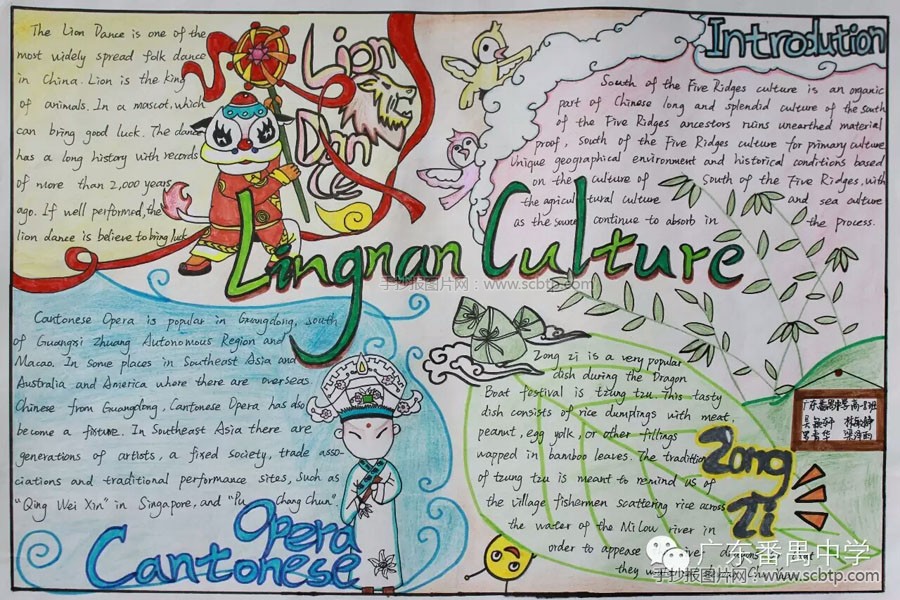 The Lion Dance is one of the
most widely spread folk dance
in China. Lion is the king
of animals. In a mascot, which
can bring good luck. The dance
has a long history with records
of more than 2,000 years
ago. If well performed, the
lion dance is believe to bring luck
Lion
Dance
Introdution
South of the Five Ridges culture is an organic
part of Chinese long and splendid culture of the south
of the Five Ridges ancestors ruins unearthed material
proof, south of the Five Ridges culture for primary culture
Unique geographical environment and historical conditions based
on the culture of South of the Five Ridges, with
the agricultural culture and sea culture
as the source continue to absorb in the process.
Lingnan Culture
手抄报图片网：www.scbtp.com
Cantonese Opera is popular in Guangdong, south
of Guangxi Zhuang Autonomous Region and
Macao. In some places in Southeast Asia and
Australia and America where there are overseas
Chinese from Guangdong, Cantonese Opera has also
become a fixture. In Southeast Asia there are
generations of artists, a fixed society, trade asso-
ciations and traditional performance sites, Such as
"Qing Wei Xin" in Singapore, and "Pu Chang Chun".
Opera
Cantonese
Zong zi is a very popular
dish during the Dragon
Boat festival is tzung tzu. This tasty
dish consists of rice dumplings with meat,
peanut, egg yolk, or other fillings
wapped in bamboo leaves. The tradition
of tzung tzu is meant to remind us of
the village fishermen scattering rice across
the water of the Mi Lou river in
order to appease
they
Zong
Zi
广东番禺中学高一8班
广东番禺中学
手抄报图片网：www.scbtp.com